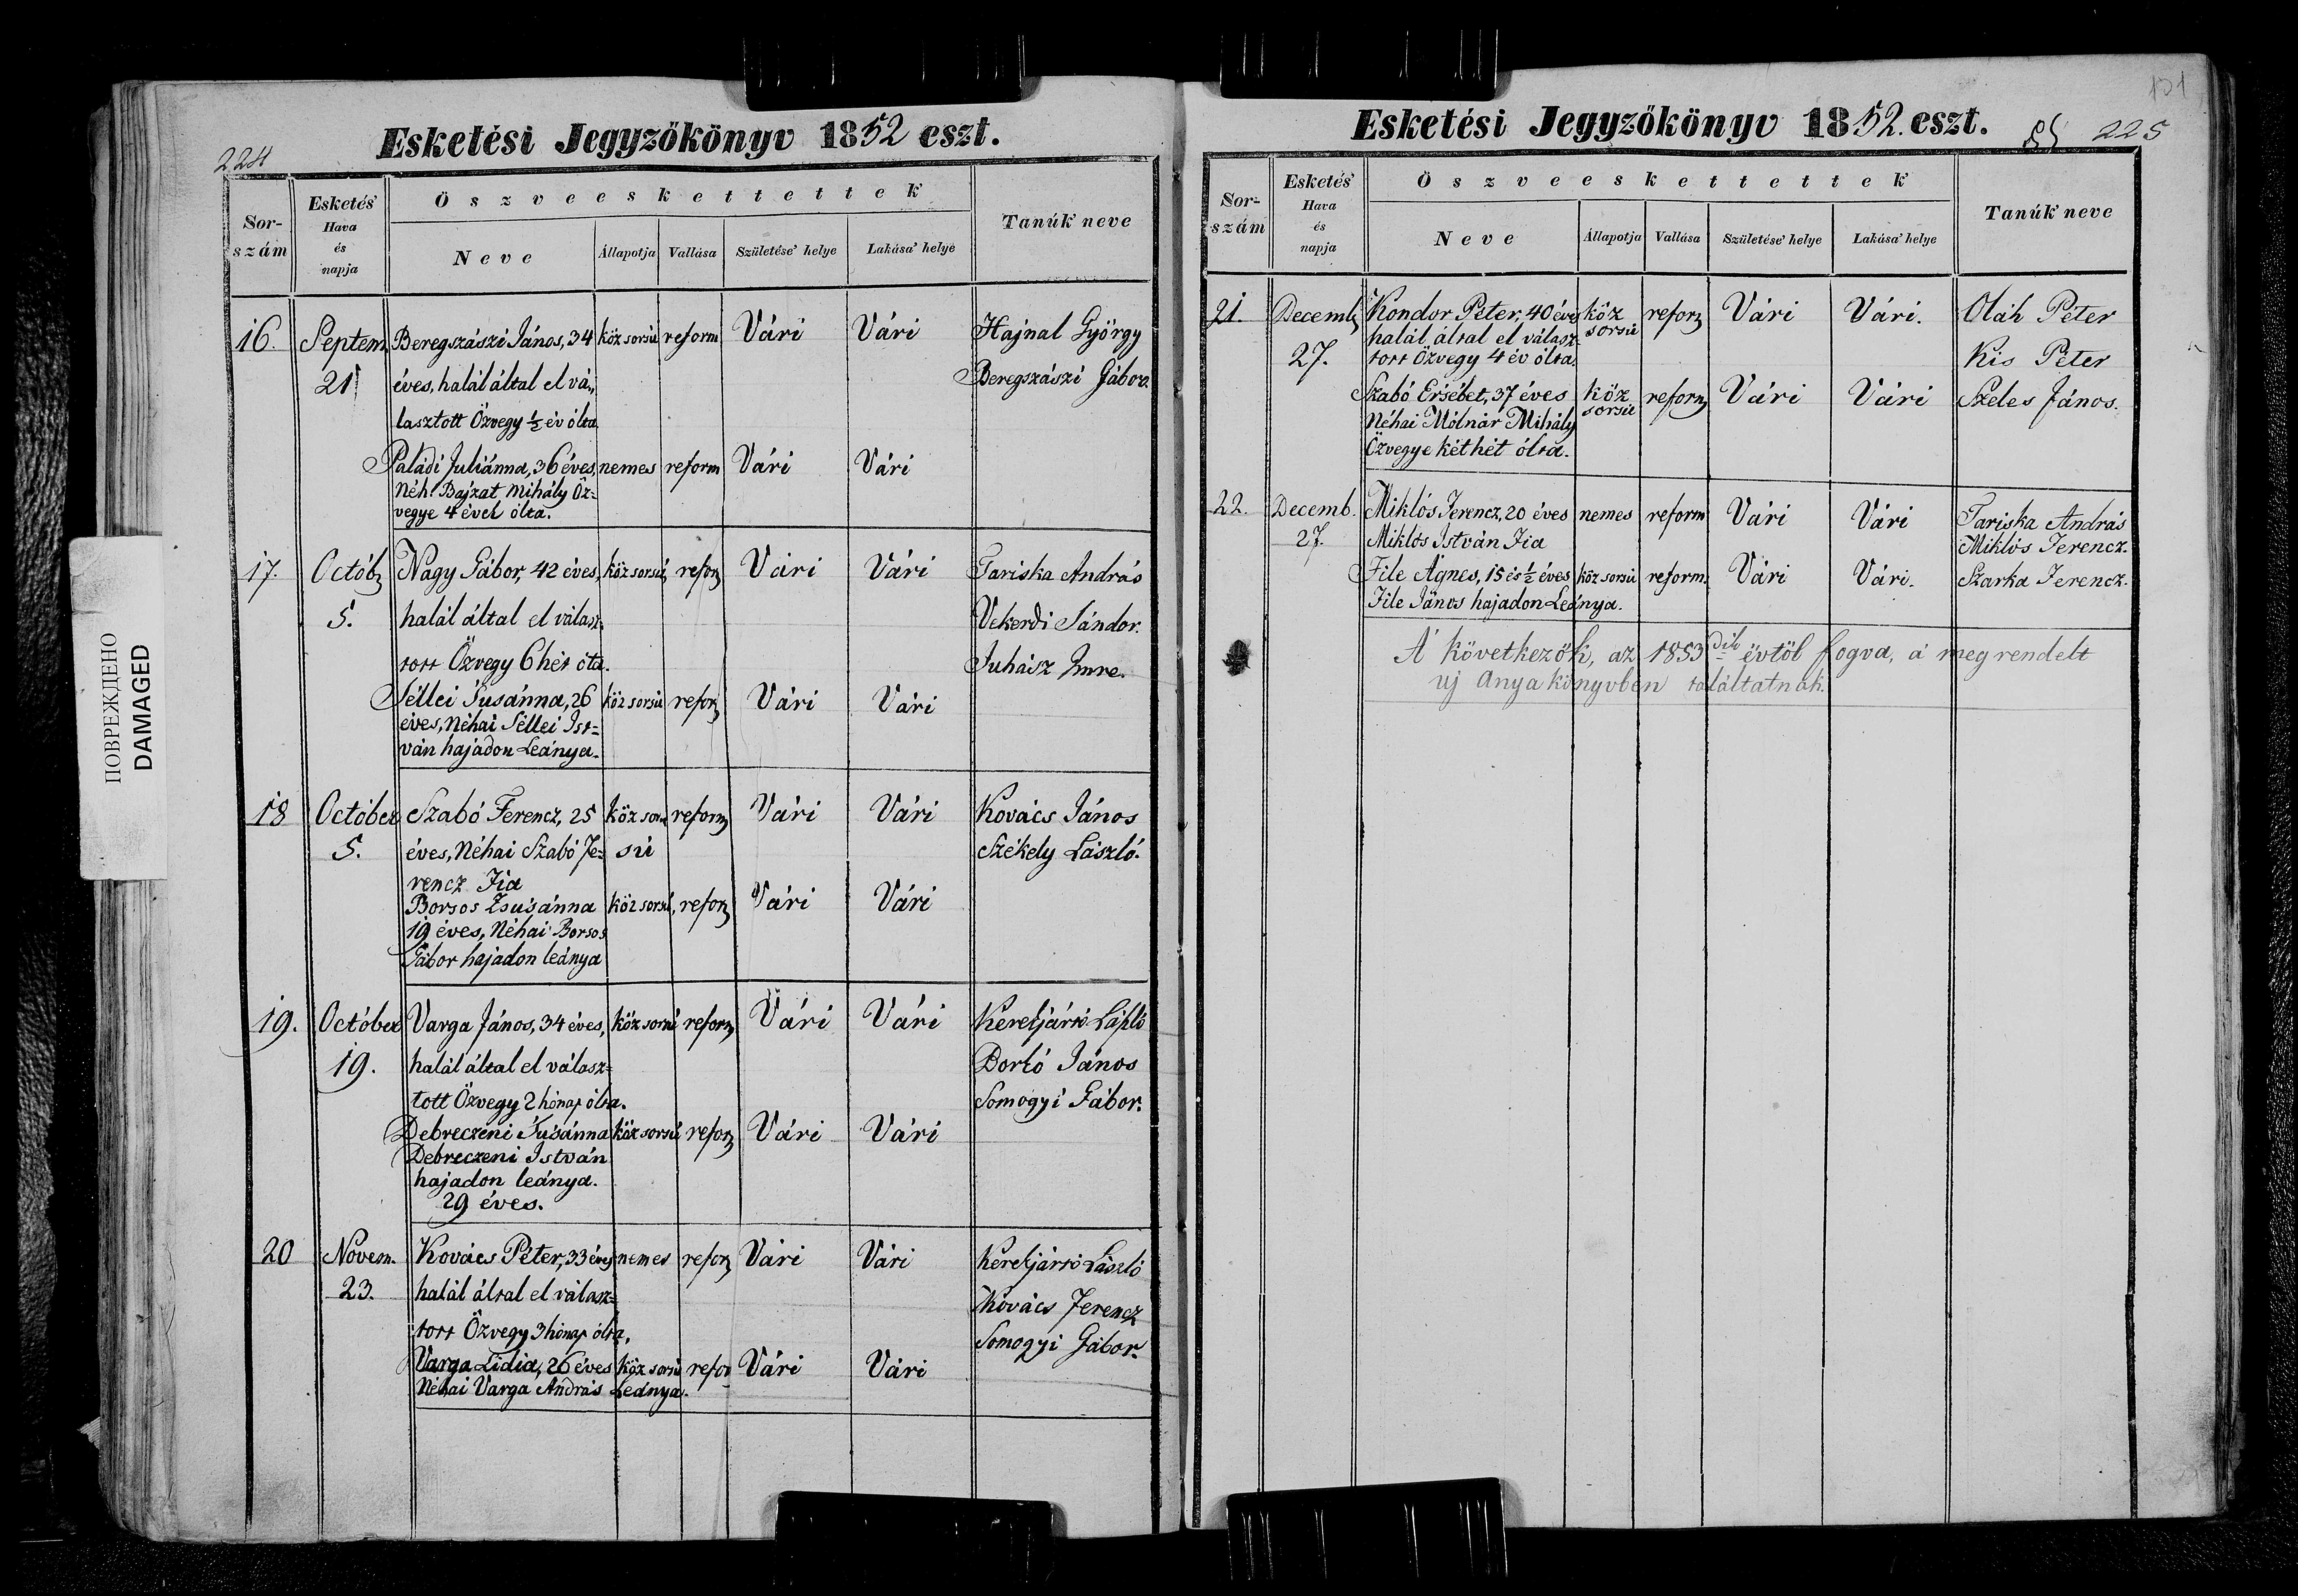 224
Esketési Jegyzőkönyv 1852 eszt.
Sor-szám
Esketés' Hava és napja
Öszveeskettettek
Neve
Állapotja
Vallása
Születése' helye
Lakása' helye
Tanúk' neve
16. Septem. Beregszászi János, 34 köz sorsú reform Vári Vári Hajnal György
21 éves, halál által el vá- Beregszászi Gábor.
lasztott Özvegy ½ év ólta
Paládi Juliánna, 36 éves, nemes reform Vári Vári
Néh. Bajzat Mihály Öz=
vegye 4 évek ólta.
17. Octób Nagy Gábor, 42 éves, köz sorsú, refor Vári Vári Tariska András
5. halál által el válasz- Vekerdi Sándor.
tott Özvegy 6 hét óta. Juhász Imre.
Séllei Susánna, 26 köz sorsú refor Vári Vári
éves, Néhai Séllei Ist=
ván hajadon Leánya.
18 Octóber Szabó Ferencz, 25 köz sor reform Vári Vári Kovács János
5. éves, Néhai Szabó Fe- sú Székely László.
rencz Fia
Borsos Zsusánna köz sorsú, refor Vári Vári
19 éves, Néhai Borsos
Gábor hajadon leánya
19. Octóber Varga János, 34 éves, köz sorsú reform Vári Vári Keretjártó László
19. halál által el válasz= Borló János
tott Özvegy 2 hónap ólta. Somogyi Gábor.
Debreczeni Susánna köz sorsú refor Vári Vári
Debreczeni István
hajadon leánya.
29 éves.
20 Novem. Kovács Péter, 33 éves nemes refor Vári Vári Keretjártó László
23. halál által el válasz= Kovács Ferencz
tott Özvegy 3 hónap ólta, Somogyi Gábor.
Varga Lidia, 26 éves köz sorsú refor Vári Vári
Néhai Varga András Leánya.
ПОВРЕЖДЕНО
DAMAGED
Esketési Jegyzőkönyv 1852. eszt.
225
Sor-szám
Esketés' Hava és napja
Öszveeskettettek
Neve
Állapotja
Vallása
Születése' helye
Lakása' helye
Tanúk' neve
21. Decemb Kondor Péter, 40 éves köz sorsú reform Vári Vári. Oláh Péter
27. halál által el válasz- Kis Péter
tott Özvegy 4 év ólta.
Szabó Ersébet, 37 éves köz sorsú reform Vári Vári Szeles János.
Néhai Mólnár Mihály
Özvegye két hét ólta.
22. Decemb. Miklós Ferencz, 20 éves nemes reform Vári Vári Tariska András
27. Miklós István Fia Miklós Ferencz.
File Ágnes, 15 és ½ éves köz sorsú reform. Vári Vári. Szarka Ferencz.
File János hajadon Leánya.
A' következők, az 1853dik évtől fogva, a' meg rendelt
uj Anya könyvben találtatnak.